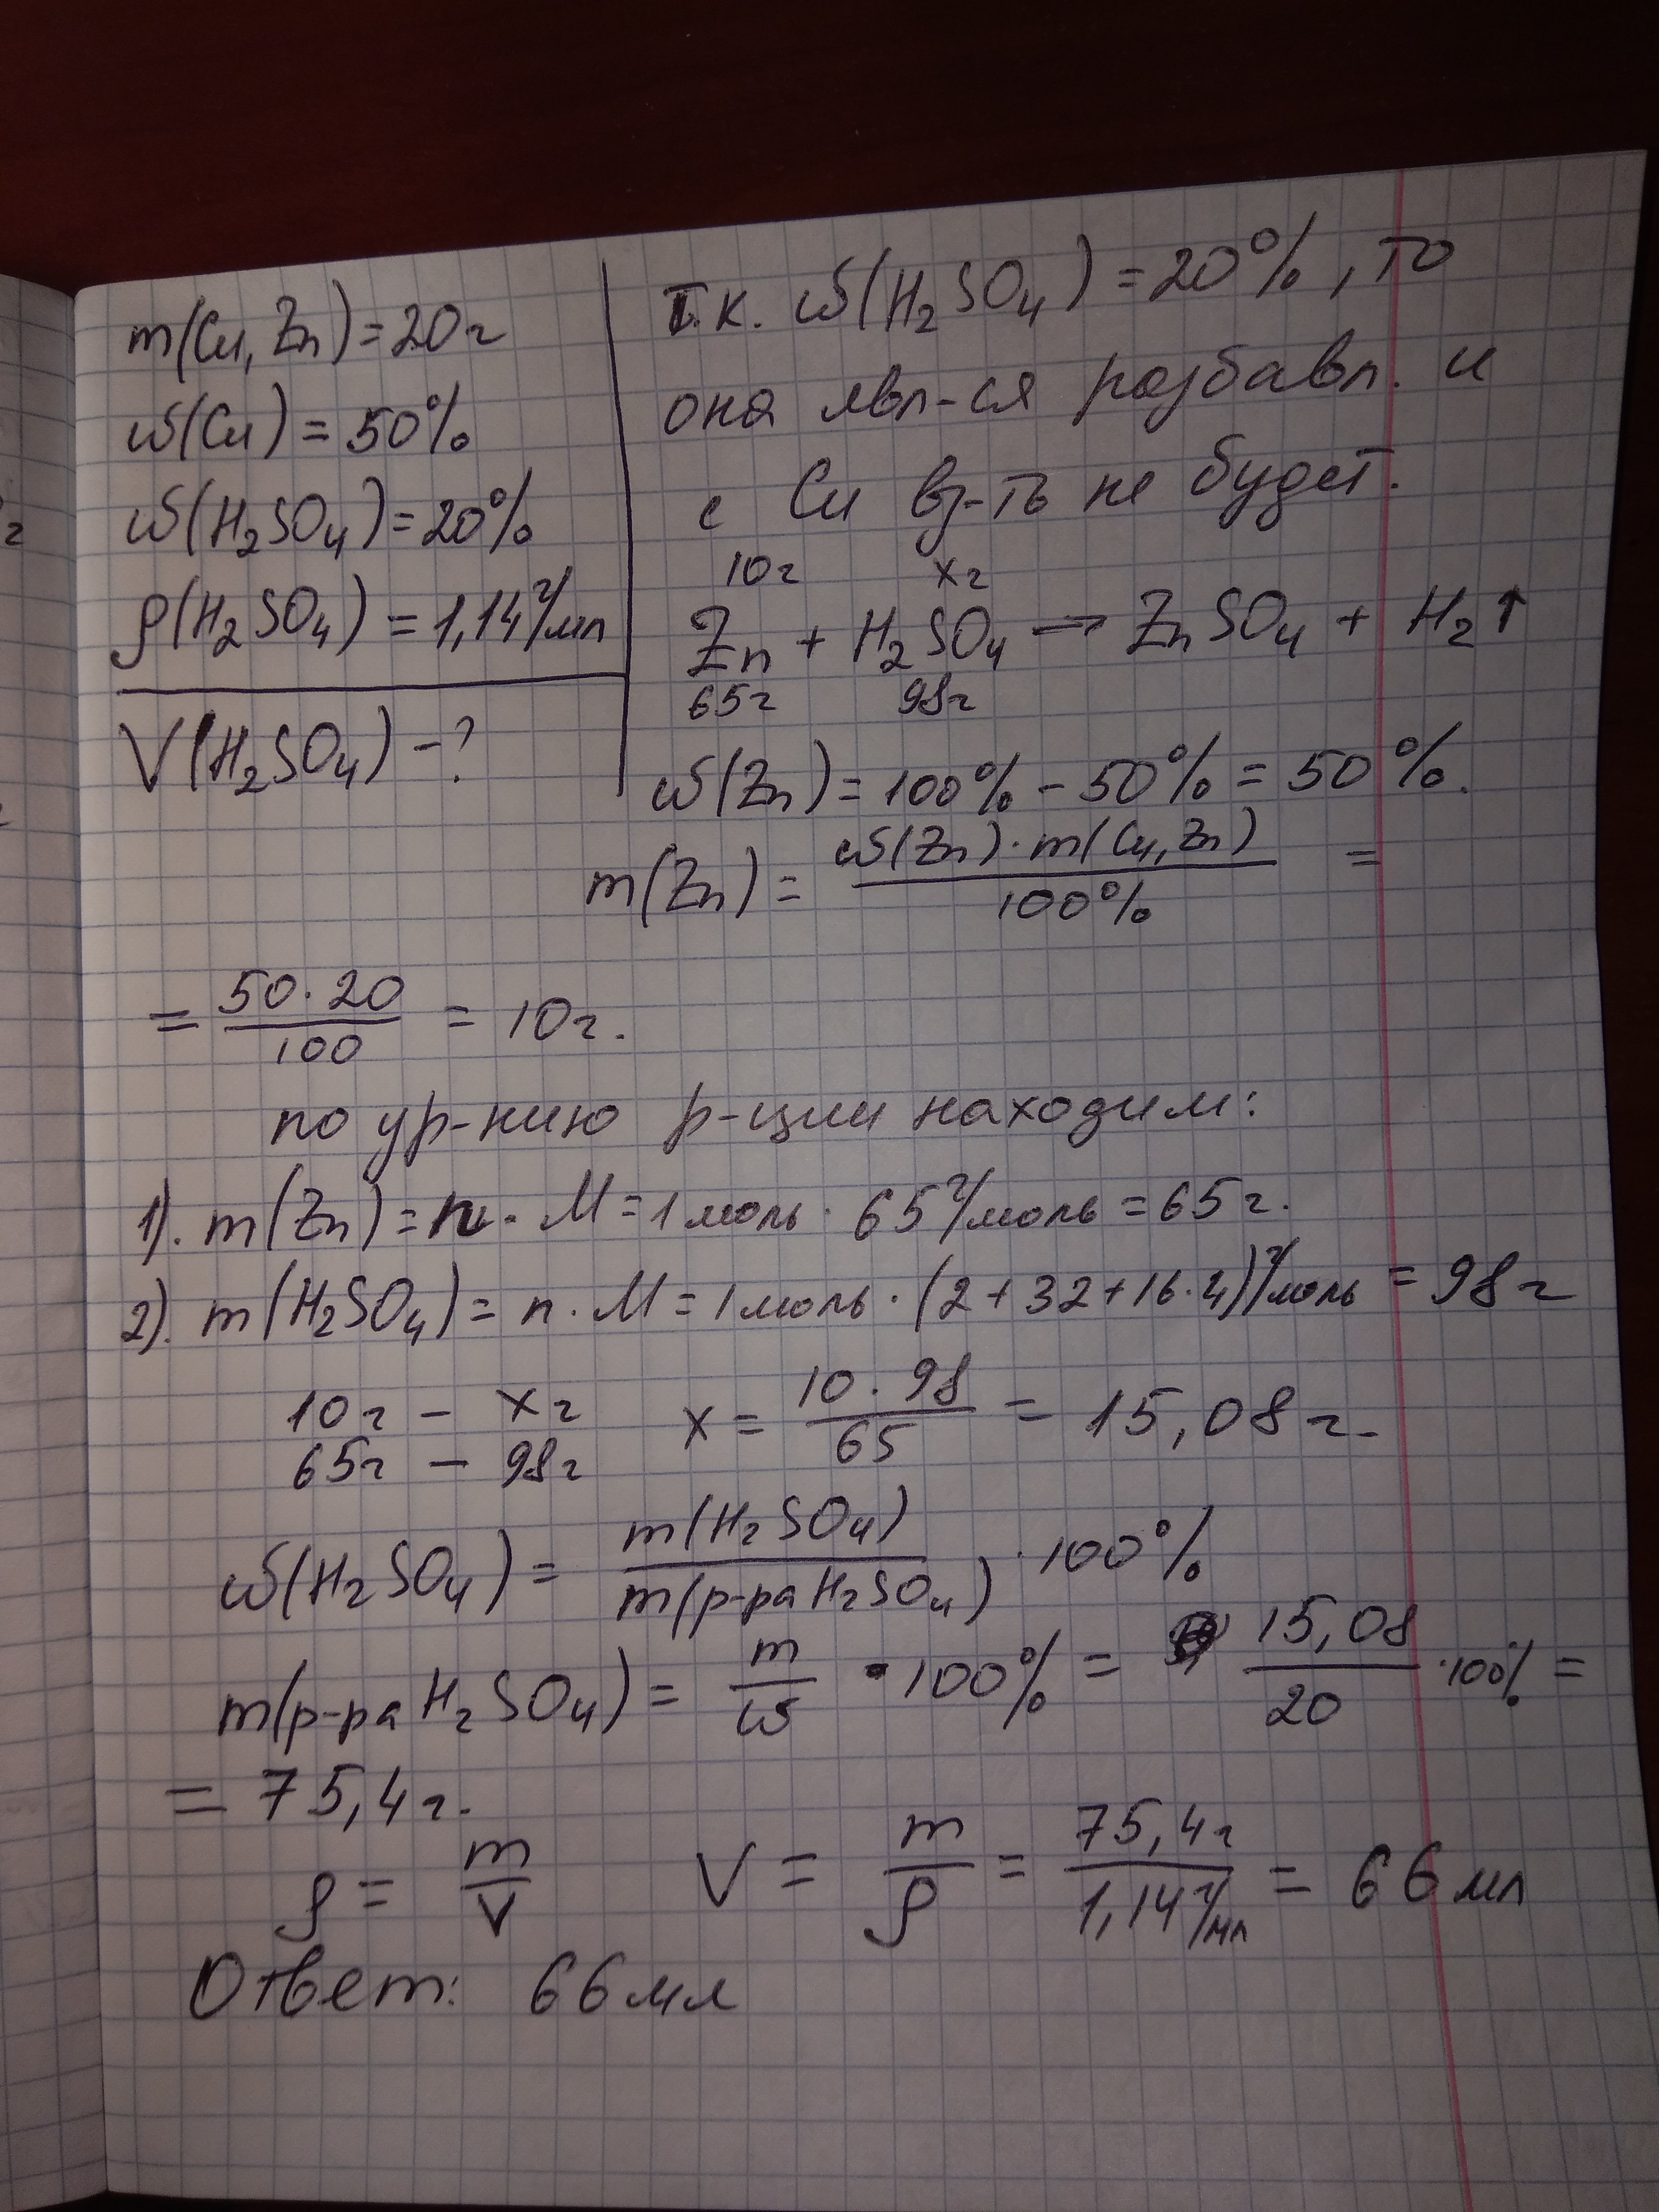 m(Cu, Zn) = 20г
ω(Cu) = 50%
ω(H₂SO₄) = 20%
ρ(H₂SO₄) = 1,14 г/мл
V(H₂SO₄) - ?
т.к. ω(H₂SO₄) = 20%, то
она явл-ся разбавл. и
с Cu вз-ть не будет.
10г xг
Zn + H₂SO₄ → ZnSO₄ + H₂↑
65г 98г
ω(Zn) = 100% - 50% = 50%.
m(Zn) = ω(Zn) · m(Cu, Zn) / 100% =
= 50 · 20 / 100 = 10г.
по ур-нию р-ции находим:
1). m(Zn) = n · M = 1 моль · 65 г/моль = 65г.
2). m(H₂SO₄) = n · M = 1 моль · (2 + 32 + 16 · 4) г/моль = 98г
10г - xг x = 10 · 98 / 65 = 15,08г.
65г - 98г
ω(H₂SO₄) = m(H₂SO₄) / m(р-ра H₂SO₄) · 100%
m(р-ра H₂SO₄) = m / ω · 100% = 15,08 / 20 · 100% =
= 75,4г.
ρ = m / V V = m / ρ = 75,4г / 1,14 г/мл = 66 мл
Ответ: 66 мл